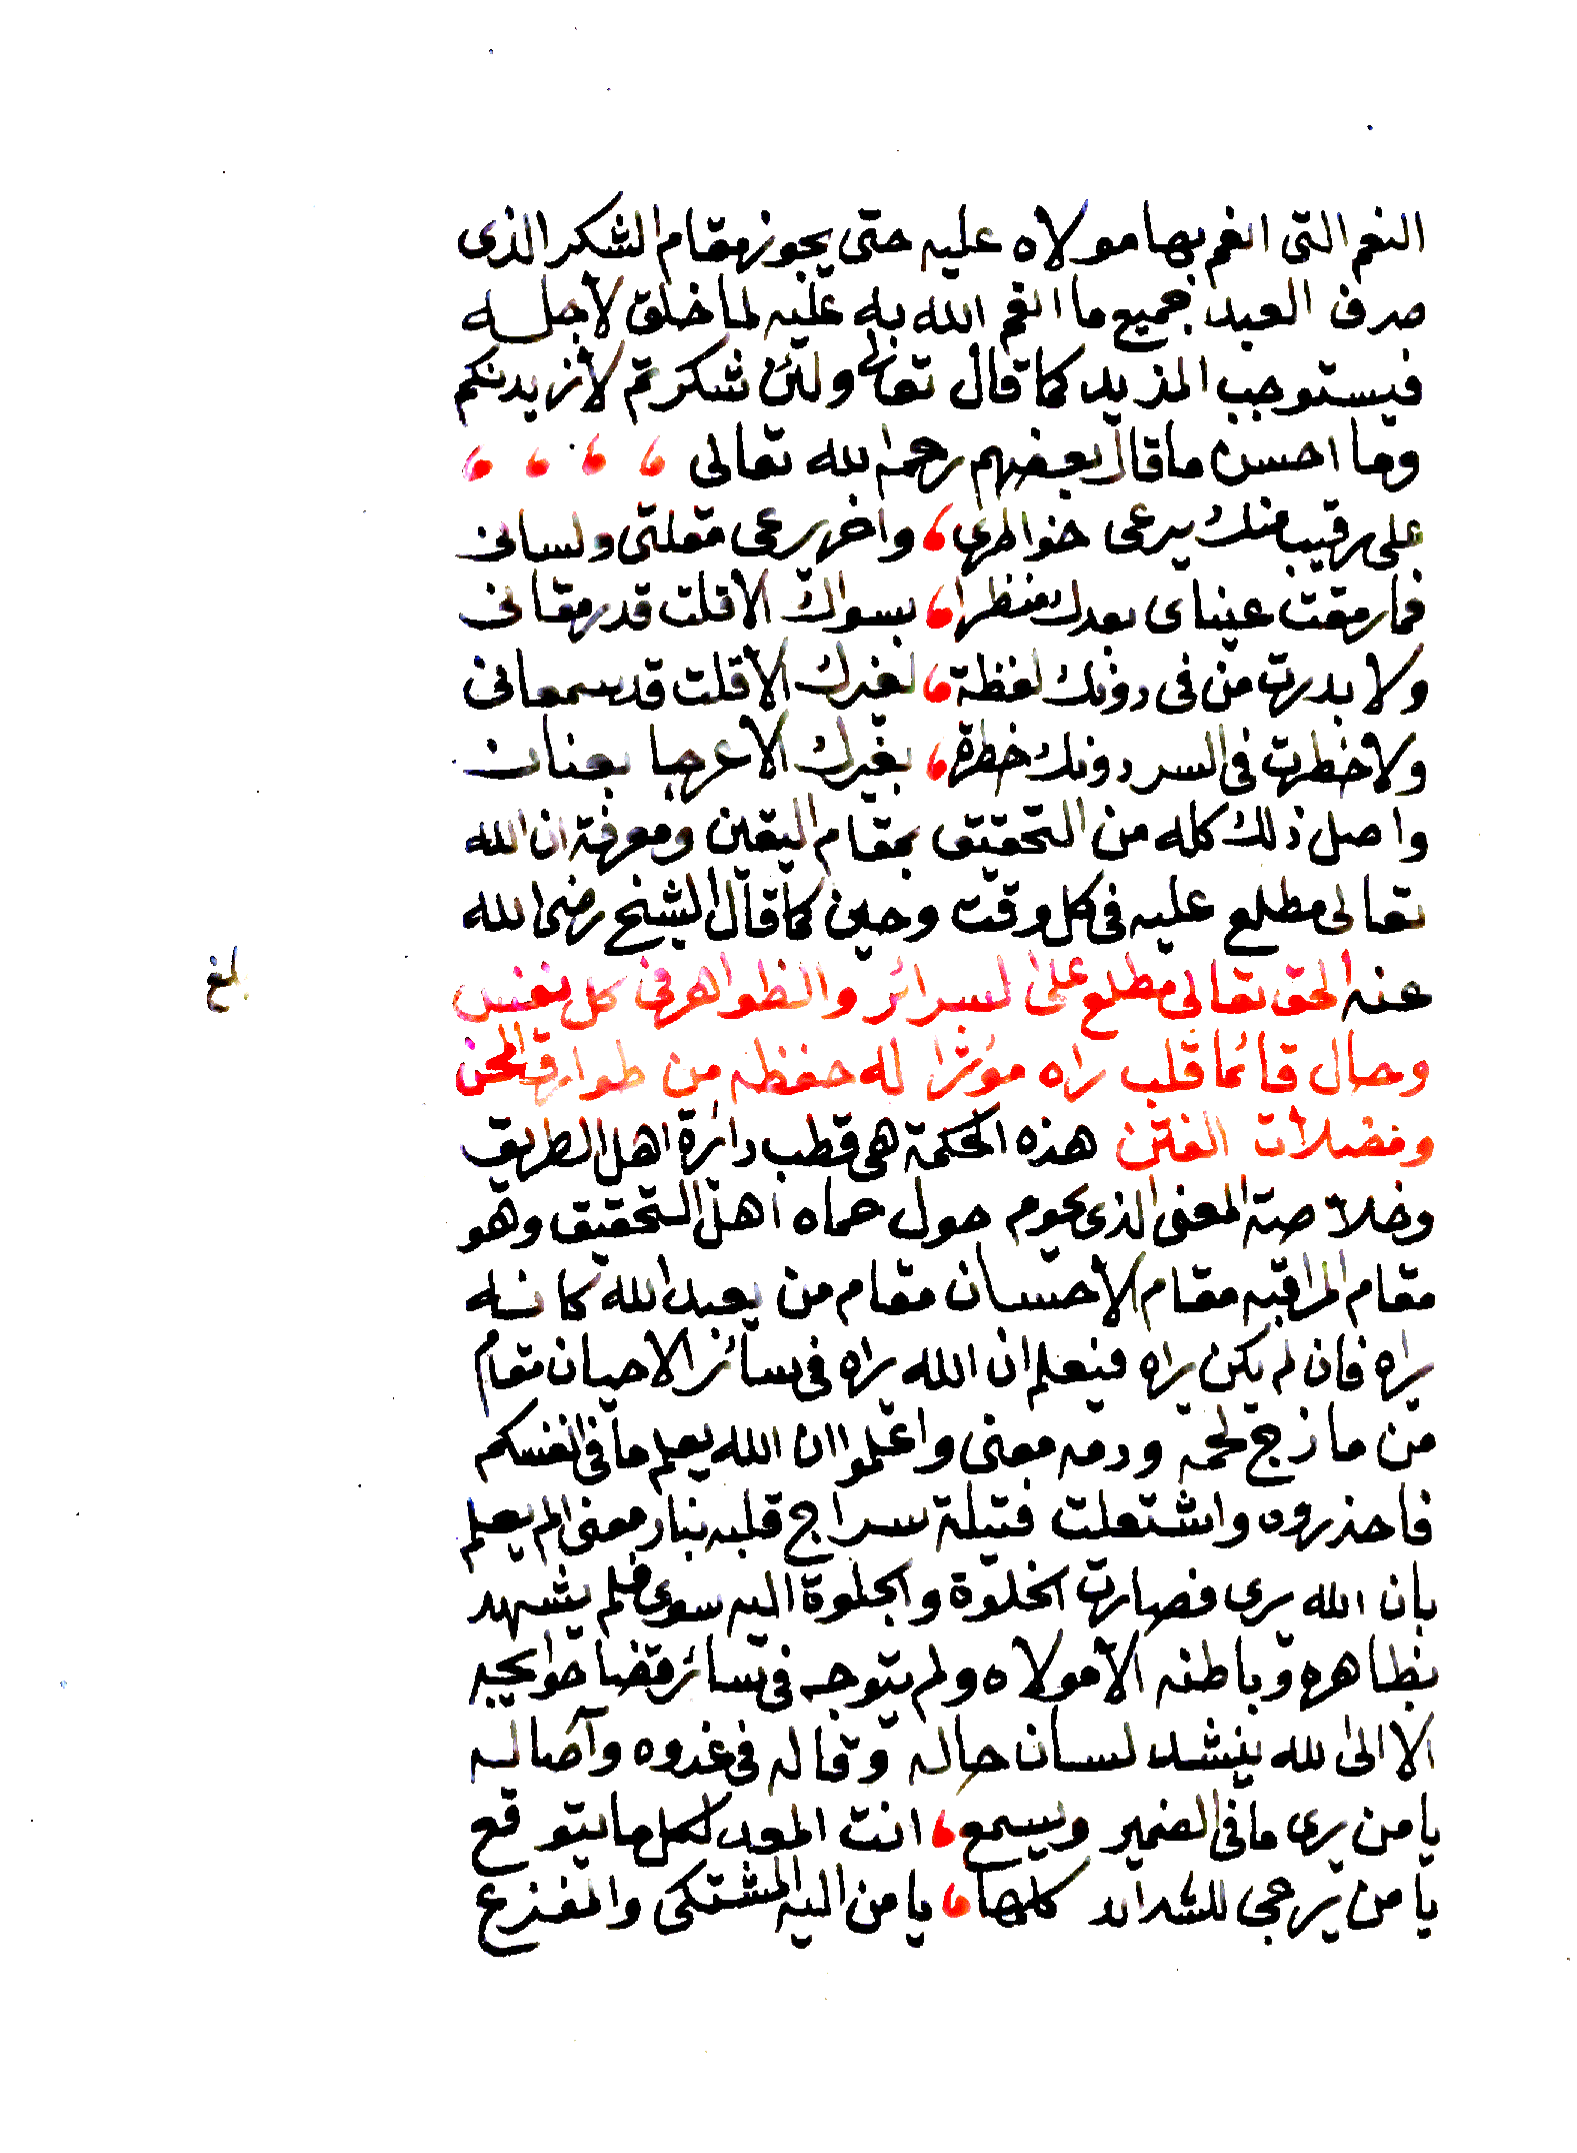 النعم التى انعم بها مولاه عليه حتى يجوز مقام الشكر الذى
صرف العبد جميع ما انعم الله به عليه لما خلق لأجله
فيستوجب المزيد كما قال تعالى ولئن شكرتم لأزيدنكم
وما احسن ما قال بعضهم رحمه الله تعالى
على رقيب منك يرعى خواطرى ، واخر يرعى مقلتى ولسانى
فما رمقت عيناى بعدك منظرا ، بسواك الا قلت قد رمقانى
ولا بدرت من فى دونك لفظة ، لغيرك الا قلت قد سمعانى
ولا خطرت فى السر دونك خطرة ، بغيرك الا عرجا بعنان
واصل ذلك كله من التحقيق بمقام اليقين ومعرفة ان الله
تعالى مطلع عليه فى كل وقت وحين كما قال الشيخ رضى الله
عنه الحق تعالى مطلع على السرائر والظواهر فى كل نفس
بلغ
وحال قائما قلب راه موثرا له حفظه من طوارق المحن
ومضلات الفتن هذه الحكمة هى قطب دائرة اهل الطريق
وخلاصة المعنى الذى يحوم حول حماه اهل التحقيق وهو
مقام المراقبه مقام الاحسان مقام من يعبد الله كانه
يراه فان لم يكن يراه فيعلم ان الله يراه فى سائر الاحيان مقام
من مازج لحمه ودمه معنى واعلموا ان الله يعلم ما فى انفسكم
فاحذروه واشتعلت فتيلة سراج قلبه بنار معنى الم يعلم
بان الله يرى فصارت الخلوة والجلوة اليه سوى فلم يشهد
بظاهره وباطنه الا مولاه ولم يتوجه فى سائر قضا حوايجه
الا الى الله ينشد لسان حاله وقاله فى غدوه وآصاله
يا من يرى ما فى الضمير ويسمع ، انت المعد لكل ما يتوقع
يا من يرجى للشدايد كلها ، يا من اليه المشتكى والمفزع